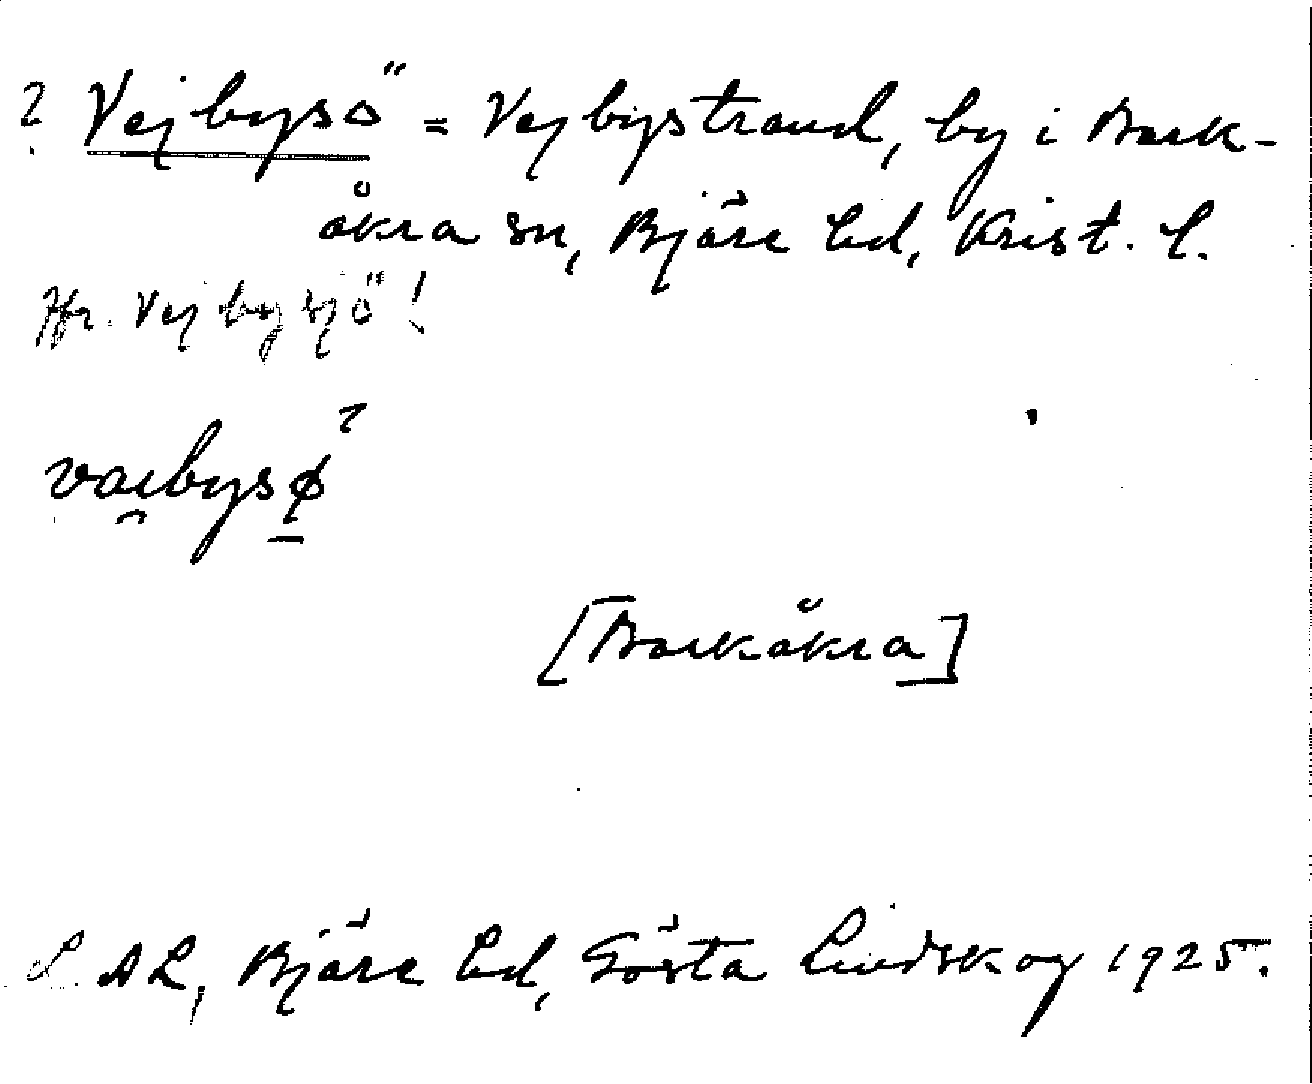 ? Vejbysö = Vejbystrand, by i Bark-
åkra sn, Bjäre hd, Krist. l.
Jfr. Vejbysjö!
vaibysø̨
[Barkåkra]
LAL, Bjäre hd, Gösta Lindskog 1925.